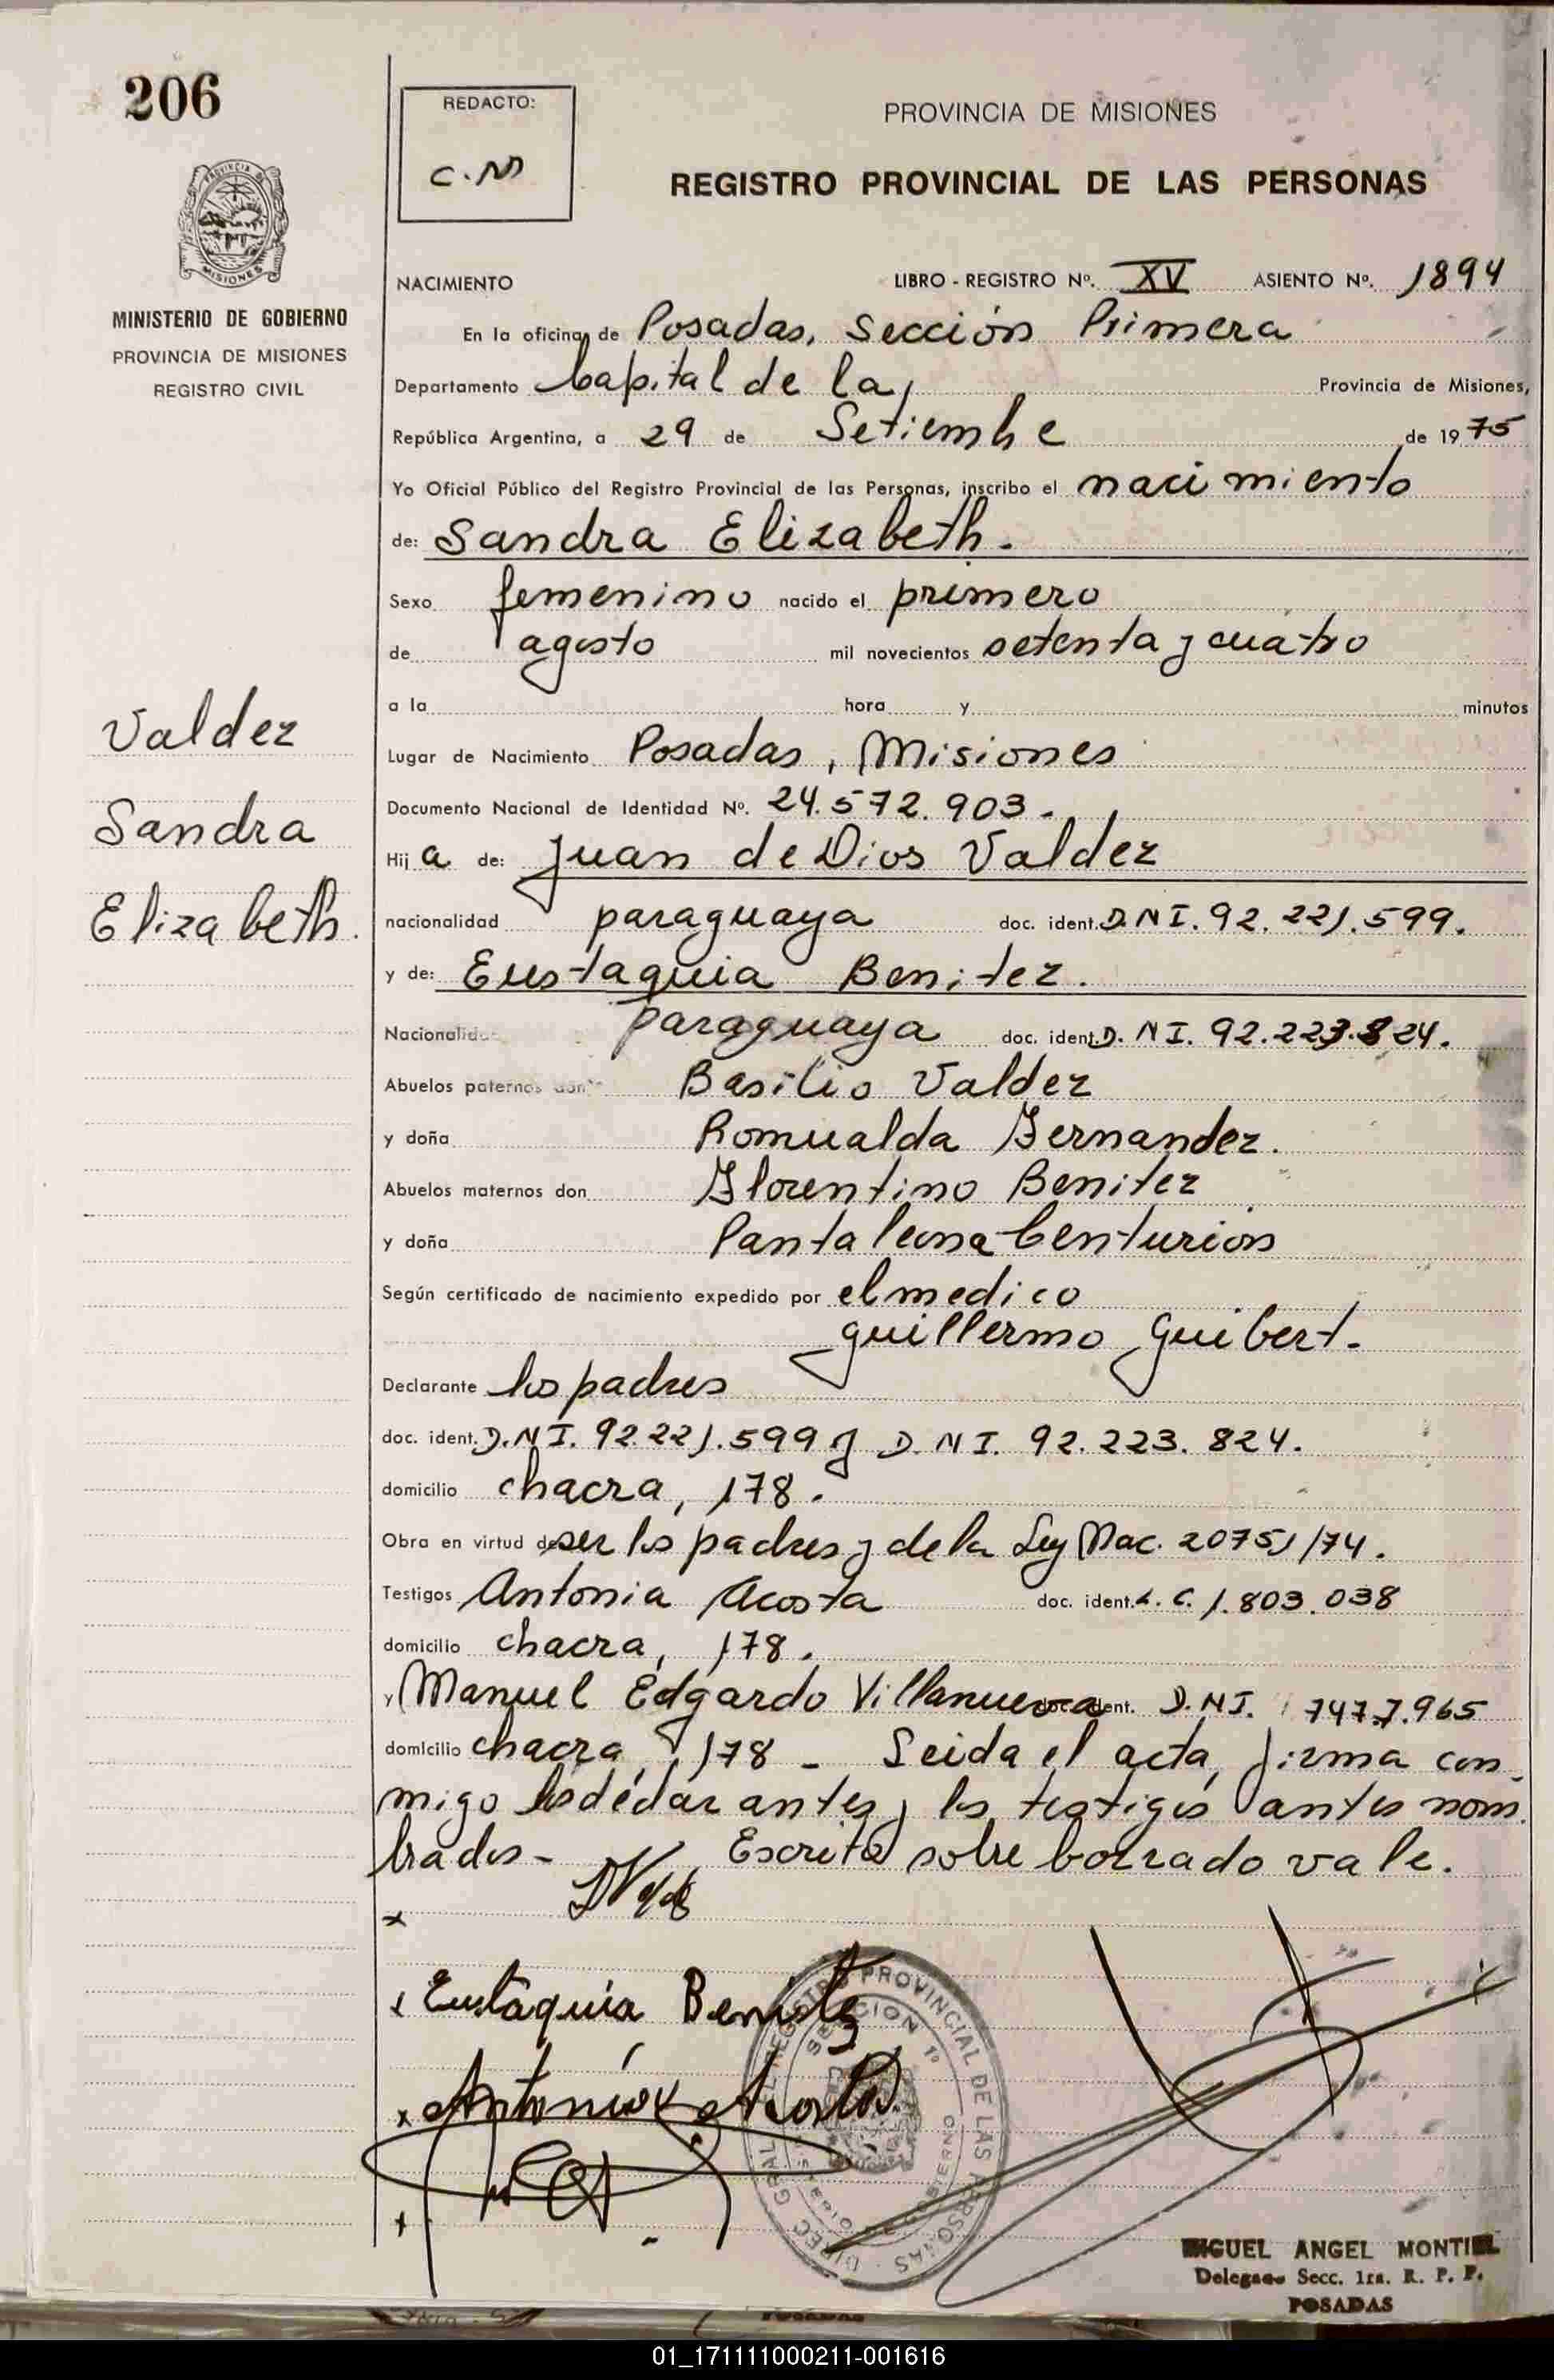 206
REDACTO:
C.M
PROVINCIA DE MISIONES
REGISTRO PROVINCIAL DE LAS PERSONAS
PROVINCIA DE
MISIONES
MINISTERIO DE GOBIERNO
PROVINCIA DE MISIONES
REGISTRO CIVIL
NACIMIENTO LIBRO - REGISTRO Nº. XV ASIENTO Nº. 1894
En la oficina de Posadas, Sección Primera
Departamento Capital de la, Provincia de Misiones,
República Argentina, a 29 de Setiembe de 1975
Yo Oficial Público del Registro Provincial de las Personas, inscribo el nacimiento
de: Sandra Elizabeth.
Sexo femenino nacido el primero
de agosto mil novecientos setenta y cuatro
a la hora y minutos
Valdez
Sandra
Elizabeth.
Lugar de Nacimiento Posadas, Misiones
Documento Nacional de Identidad Nº. 24.572.903.
Hij a de: Juan de Dios Valdez
nacionalidad paraguaya doc. ident. D.N I. 92.221.599.
y de: Eustaquia Benitez.
Nacionalid paraguaya doc. ident. D. N I. 92.223.824.
Abuelos paternos don Basilio Valdez
y doña Romualda Fernandez.
Abuelos maternos don Florentino Benitez
y doña Pantaleona Centurión
Según certificado de nacimiento expedido por el medico
guillermo Guibert.
Declarante los padres
doc. ident. D.N I. 92.221.599 y D.N I. 92.223.824.
domicilio chacra, 178.
Obra en virtud de ser los padres y de la Ley Nac. 20751/74.
Testigos Antonia Acosta doc. ident. L.C. 1.803.038
domicilio chacra, 178.
y Manuel Edgardo Villanueva doc. ident. D.N I. 7477.965
domicilio chacra, 178 - Leida el acta, firma con-
migo los declarantes y los testigos antes nom
brados - Escrito sobre borrado vale.
x
x Eustaquia Benitez
x Antonia Acosta
x
DIREC. GRAL. REGISTRO PROVINCIAL DE LAS PERSONAS
SECCION 1º
MINISTERIO DE GOBIERNO
MIGUEL ANGEL MONTIEL
Delegado Secc. 1ra. R. P. P.
POSADAS
01_171111000211-001616